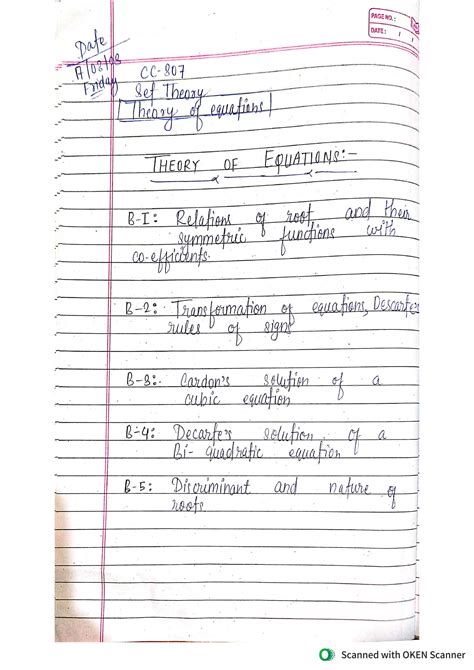 PAGE NO.:
DATE: / /
Date
Friday
CC-807
Set Theory
Theory of equations
THEORY OF EQUATIONS:-
B-I: Relations of root and their
symmetric functions with
co-efficients.
B-2: Transformation of equations, Descarte's
rules of signs
B-3: Cardon's solution of a
cubic equation
B-4: Decarte's solution of a
Bi-quadratic equation
B-5: Discriminant and nature of
roots
Scanned with OKEN Scanner